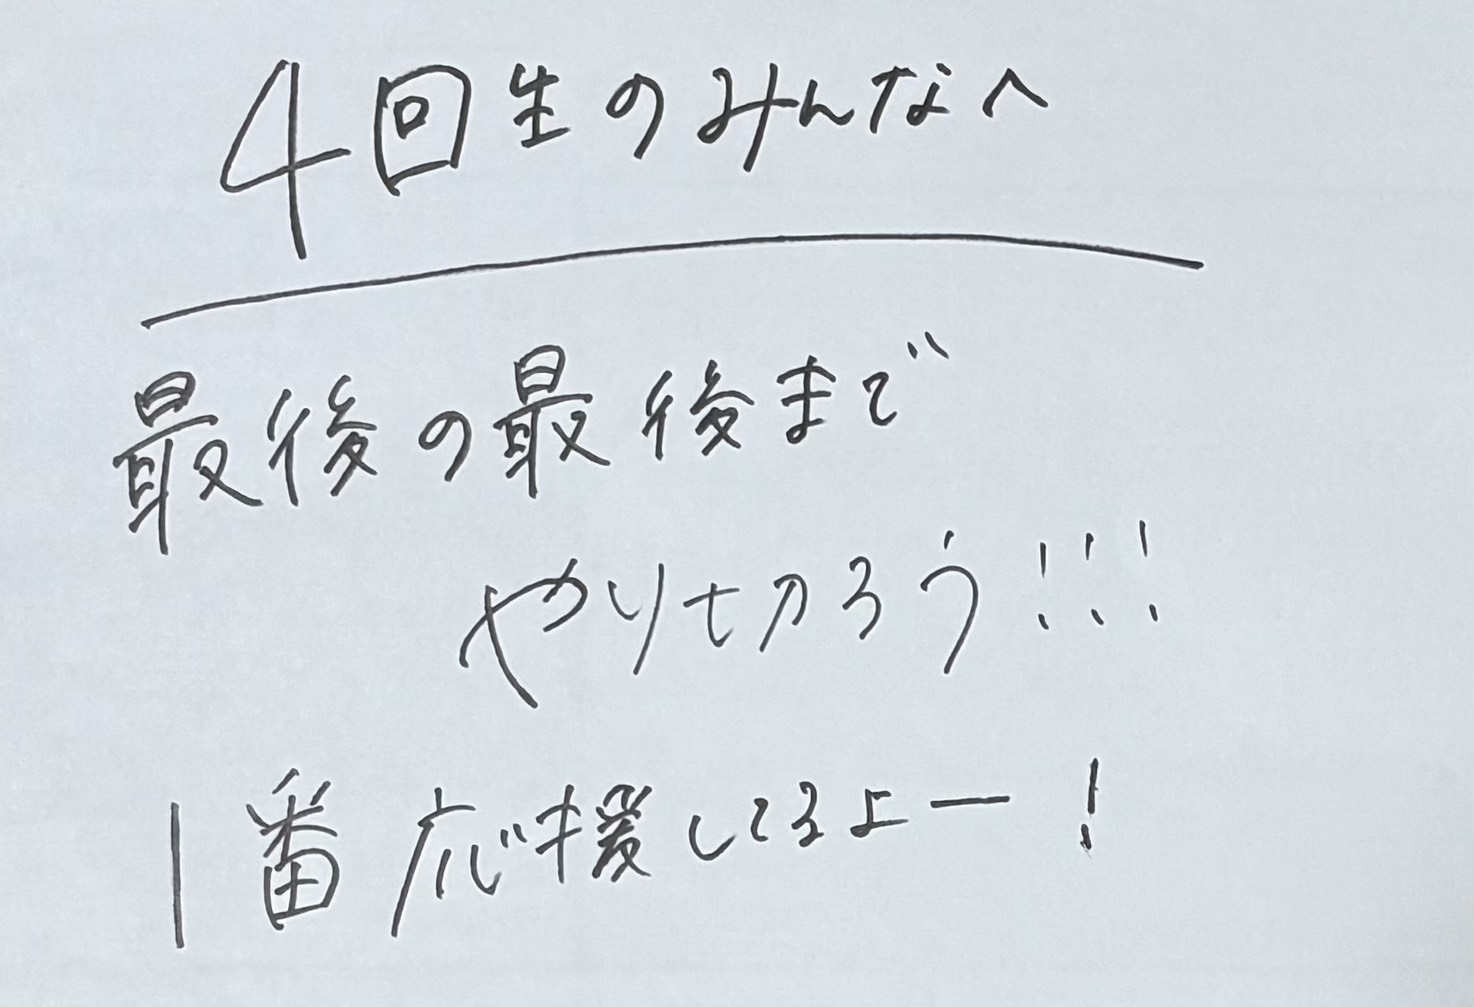 4回生のみんなへ
最後の最後まで
やり切ろう!!!
1番応援してるよー!